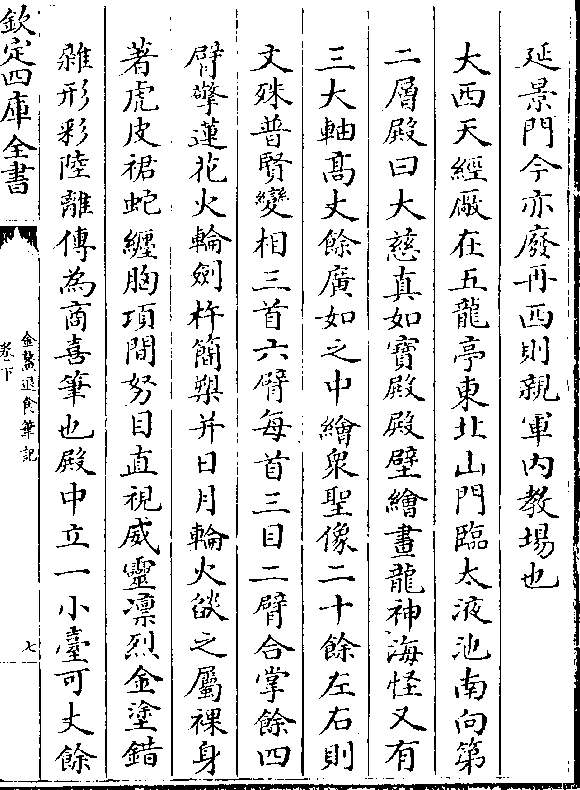 延景門今亦廢再西則親軍内教場也
大西天經厰在五龍亭東北山門臨太液池南向第
二層殿曰大慈真如寳殿殿壁繪畫龍神海怪又有
三大軸髙丈餘廣如之中繪衆聖像二十餘左右則
文殊普賢變相三首六臂每首三目二臂合掌餘四
臂擎蓮花火輪劍杵簡槊并日月輪火燄之屬裸身
著虎皮裙蛇纏胸項間努目直視威靈凛烈金塗錯
雜形彩陸離傳為商喜筆也殿中立一小臺可丈餘
欽定四庫全書
金鰲退食筆記
卷下
七